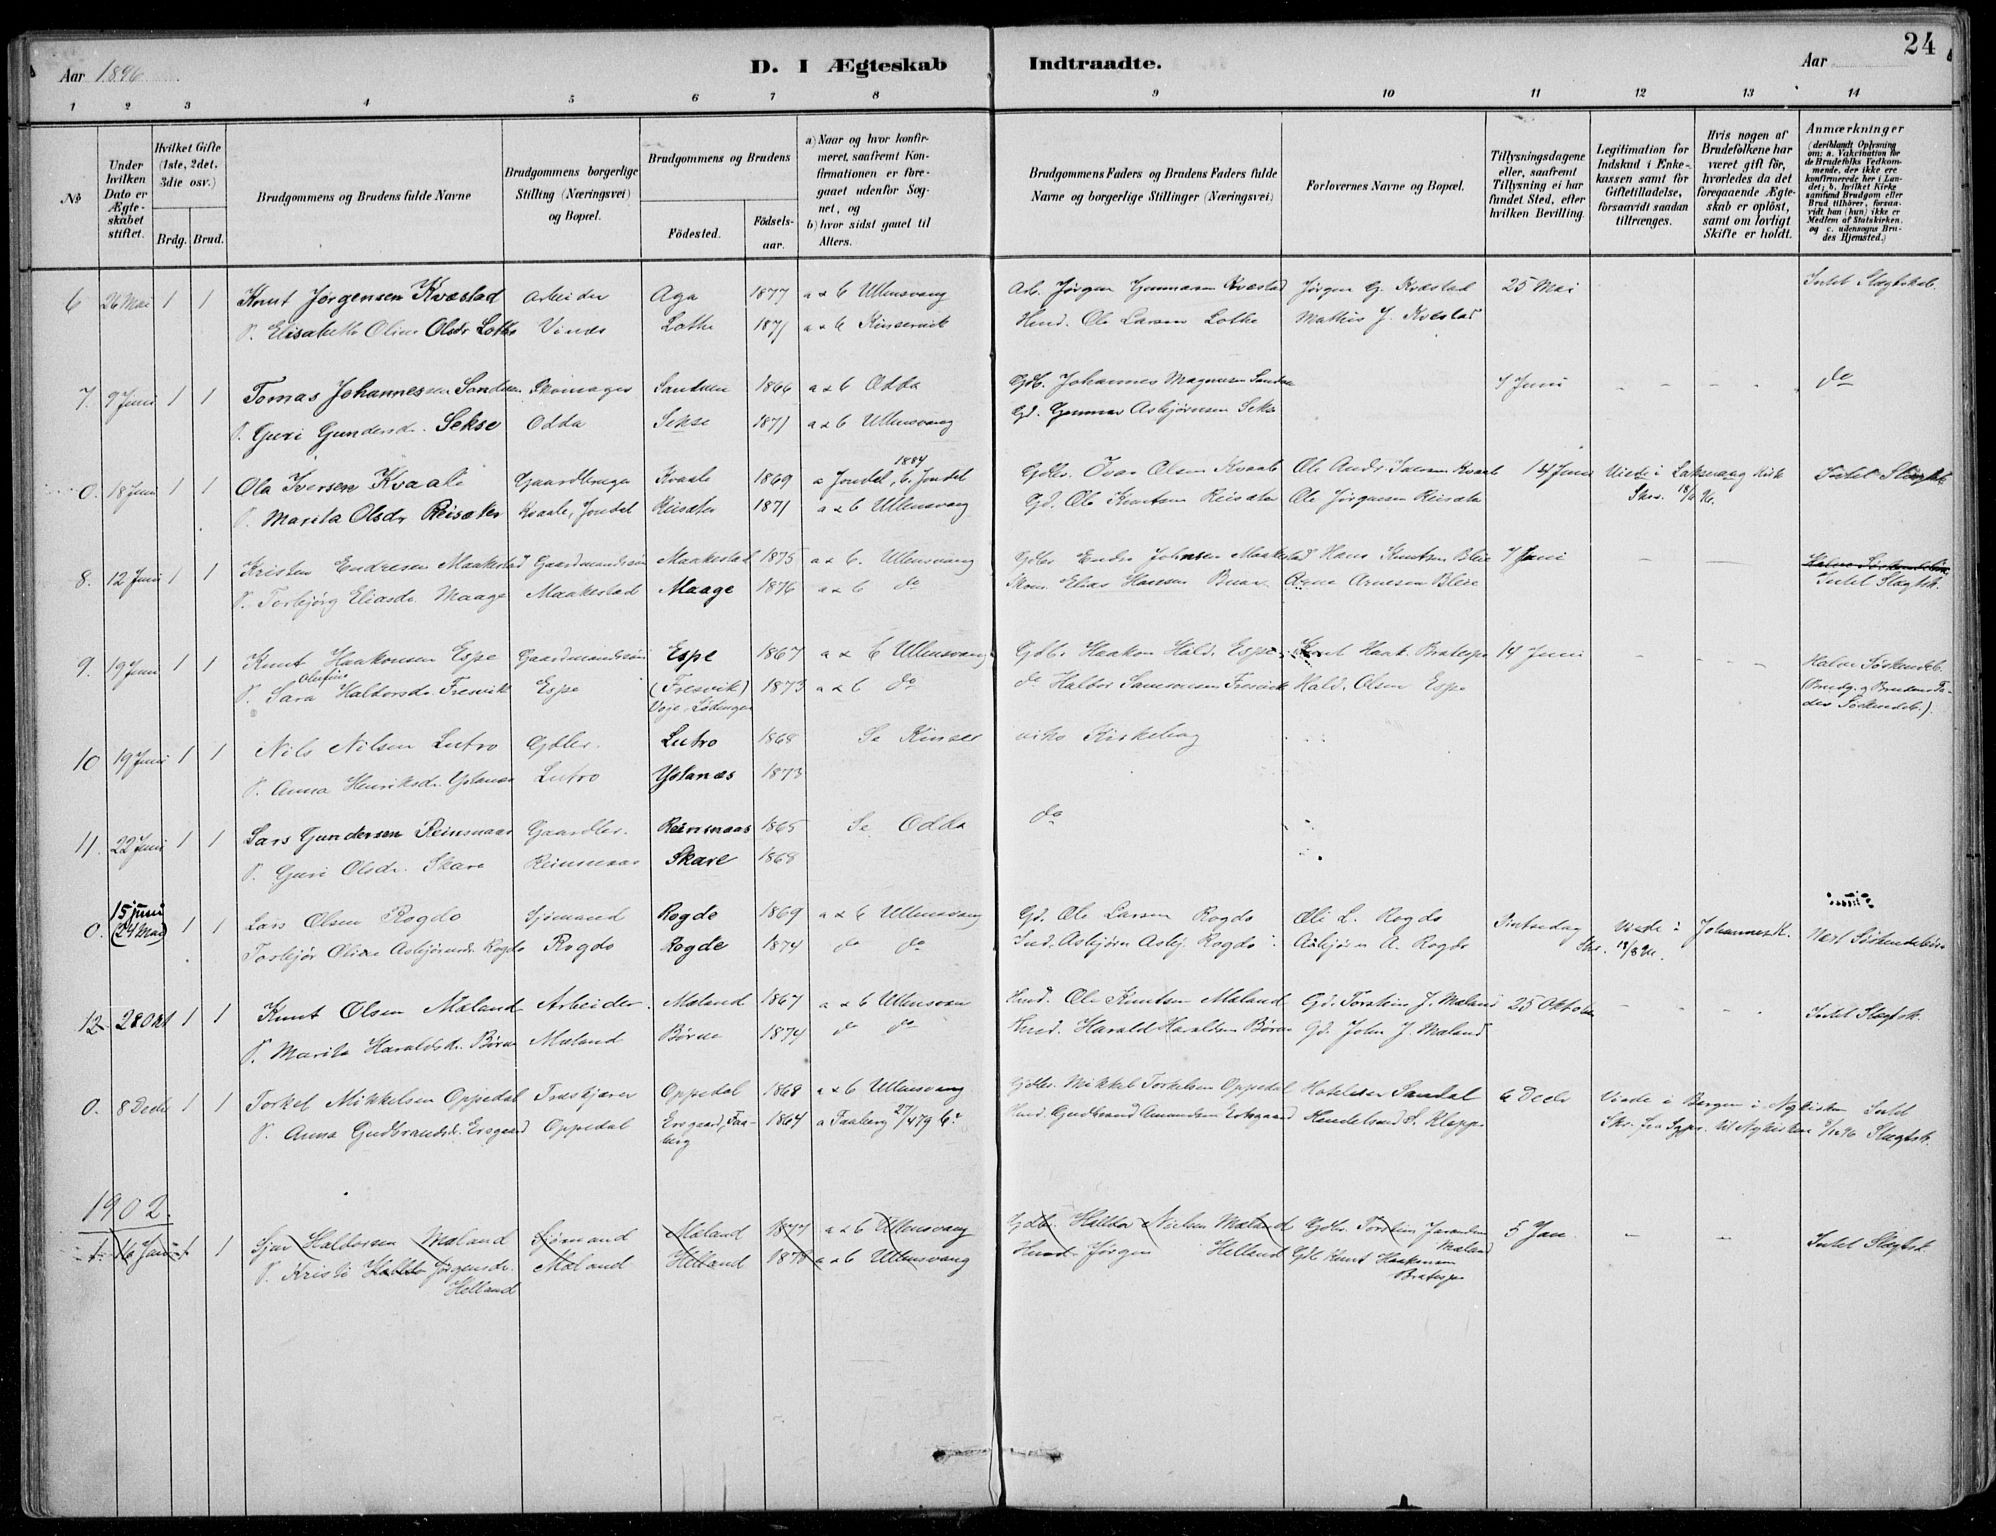 24
Aar 1896
D. I Ægteskab Indtraadte.
Aar
1 2 3 4 5 6 7 8 9 10 11 12 13 14
No
Under hvilken Dato er Ægteskabet stiftet.
Hvilket Gifte (1ste, 2det, 3die osv.)
Brdg. Brud.
Brudgommens og Brudens fulde Navne
Brudgommens borgerlige Stilling (Næringsvei) og Bopæl.
Brudgommens og Brudens
Födested.
Födsels-aar.
a) Naar og hvor konfirmeret, saafremt Konfirmationen er foregaaet udenfor Sognet, og
b) hvor sidst gaaet til Alters.
Brudgommens Faders og Brudens Faders fulde Navne og borgerlige Stillinger (Næringsvei)
Forlovernes Navne og Bopæl.
Tillysningsdagene eller, saafremt Tillysning ei har fundet Sted, efter hvilken Bevilling.
Legitimation for Indskud i Enkekassen samt for Giftetilladelse, forsaavidt saadan tiltrænges.
Hvis nogen af Brudefolkene har været gift för, hvorledes da det foregaaende Ægteskab er oplöst, samt om lovligt Skifte er holdt.
Anmærkninger (deriblandt Oplysning om: a. Vakcination for de Brudefolks Vedkommende, der ikke ere konfirmerede her i Landet; b. hvilket Kirkesamfund Brudgom eller Brud tilhörer, forsaavidt han (hun) ikke er Medlem af Statskirken, og c. udensogns Brudes Hjemsted.)
6 26 Mai 1 1 Knut Jørgensen Kvæstad Arbeider Aga 1877 a & b Ullensvang Arb. Jørgen Gunnarsen Kvæstad Jørgen G. Kvæstad 25 Mai Intet Slægtskab.
P. Elisabeth Oline Olsdr Lothe Vines Lothe 1871 a & b Kinservik Husd. Ole Larsen Lothe Mathis J. Kvestad
7. 9 Juni 1 1 Tomas Johannessen Sandven Skomager Sandven 1866 a & b Odda Gdb. Johannes Magnesen Sandven 7 Juni - - - - do
P. Guri Gundersdr. Sekse Odda Sekse 1871 a & b Ullensvang Gd. Gunnar Asbjørnsen Sekse
0. 18 Juni 1 1 Ola Iversen Kvaale Gaardbruger Kvaale 1869 a Jondal 1884, b. Jondal Gdbr. Ivar Olsen Kvaale Ole Andr. Iversen Kvaale 14 Juni Viede i Laksevaag Kirke Intet Slægtsk.
P. Marita Olsdr Reisæter Kvaale, Jondal Reisæter 1871 a & b Ullensvang Gd. Ole Knutsen Reisæter Ole Jørgensen Reisæter Skr. 18/6 96.
8. 12 Juni 1 1 Kristen Endresen Maakestad Gaardmandssøn Maakestad 1875 a & b. Ullensvang Gdbr Endre Johnsen Maakestad Hans Knutsen Bleie 7 Juni - -
P. Torbjørg Eliasdr. Maage Maakestad Maage 1876 a & b do Skom. Elias Hansen Arne Arnesen Bleie Intet Slægtsk.
9. 19 Juni 1 1 Knut Haakonsen Espe Gaardmandssøn Espe 1867 a & b Ullensvang Gdbr. Haakon Hald. Espe Knut Haak. Bratespe 14 Juni - - - Halve Søskendeb.
Olufine
P. Sara Haldorsdr. Fresvik Espe (Fresvik) 1873 a & b do do Haldor Samsonsen Fresvik Hald. Olsen Espe (Brudg. og Brudens Fædre Søskendeb.).
Voje, Lødingen
10 19 Juni 1 1 Nils Nilsen Lutro Gdbr. Lutro 1868 Se Kinserviks Kirkebog
P. Anna Henriksdr. Yslanæs Lutro Yslanæs 1873
11. 22 Juni 1 1 Lars Gundersen Reinsnaas Gaardbr. Reinsnaas 1865 Se Odda do
P. Guri Olsdr. Skare Reinsnaas Skare 1868
0. 15 juni (24 Mai) 1 1 Lars Olsen Rogde Sjømand Rogde 1869 a & b Ullensvang Gd. Ole Larsen Rogde Ole L. Rogde Pintsedag Viede i Johannesk. Næst Søskendebørn
Torbjør Oline Asbjørnsdr. Rogde Rogde Rogde 1874 do do Ind. Asbjørn Asbj. Rogde Asbjørn A. Rogde Skr.
12 28 Okt 1 1 Knut Olsen Mæland Arbeider. Mæland 1867 a & b Ullensvan Husd. Ole Knutsen Mæland Gd. Torstein J. Mæland 25 Oktober - - - Intet Slægtsk.
P. Marita Haraldsdr. Børve Mæland Børve 1874 do do Husd. Harald Haraldsen Børve Gd. John J. Mæland
0. 8 Decbr 1 1 Torkel Mikkelsen Oppedal Træskjærer Oppedal 1868 a & b Ullensvang Gdbr. Mikkel Torkelsen Oppedal Hoteleier Sandal 6 Decbr Viede i Bergen i Nykirken Intet
P. Anna Gudbrandsdr. Ersgaard Oppedal Ersgaard, Faaberg 1864 a Faaberg 27/4 79 b. Husd. Gudbrand Amundsen Ersgaard Handelsmand S. Kleppe Skr. fra Sgpr. til Nykirken Slægtsk.
1902.
1 16 Jan 1 1 Sjur Haldorsen Mæland Sjømand Mæland 1877 a & b Ullensvang Gdbr. Haldor Nielsen Mæland Gdbr. Torstein Jørundsen Mæland 5 Jan. - - Intet Slægtsk.
P. Kristi Jørgensdr. Helland Mæland Helland 1878 a & b Ullensvang Husd. Jørgen Helland Gdb Knut Haakonsen Bratespe